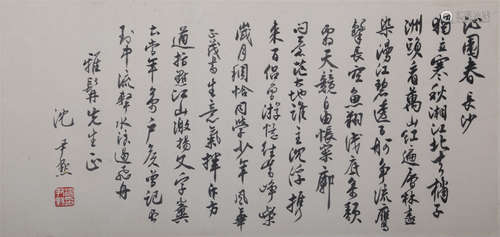 沁園春 長沙
獨立寒秋湘江北去橘子
洲頭看萬山紅遍層林盡
染漫江碧透百舸爭流鷹
擊長空魚翔淺底萬類
霜天競自由悵寥廓
問蒼茫大地誰主沈浮攜
來百侶曾遊憶往昔崢嶸
歲月稠恰同學少年風華
正茂書生意氣揮斥方
遒指點江山激揚文字糞
土當年萬戶侯曾記否
到中流擊水浪遏飛舟
先生正
沈尹默